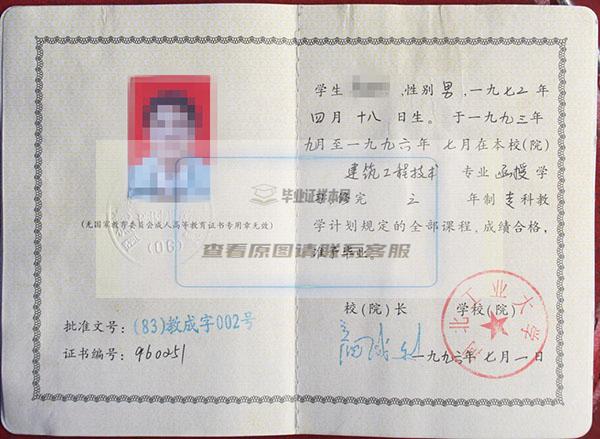 (无国家教育委员会成人高等教育证书专用章无效)
(06)
批准文号：(83)教成字002号
证书编号：960251
学生
,性别男,一九七二年
四月十八日生。于一九九三年
九月至一九九六年七月在本校(院)
建筑工程技术 专业函授学
习修完 三 年制专科教
学计划规定的全部课程,成绩合格,
准予毕业。
毕业证样本网
查看原图请联系客服
校(院)长
学校(院)
河北工业大学
一九九六年七月一日